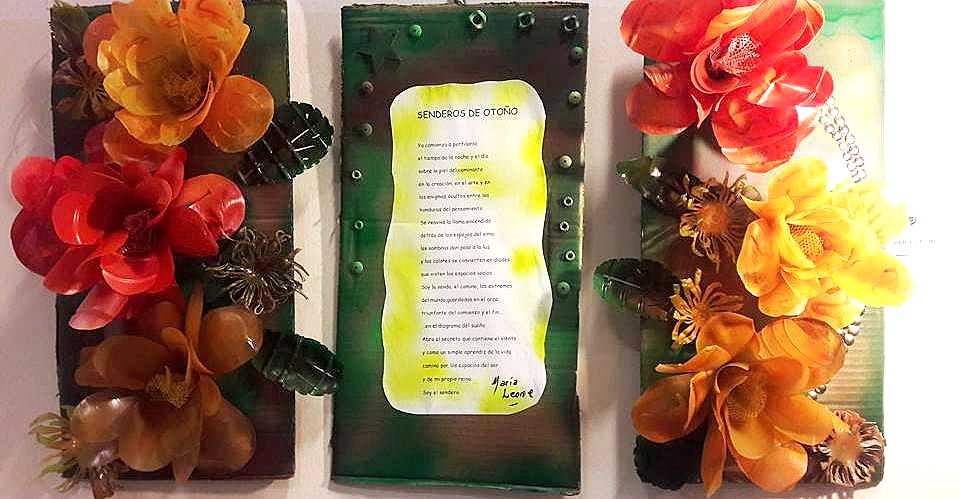 SENDEROS DE OTOÑO
Yo comienzo a perfilarme
el tiempo de la noche y el día
sobre la piel del caminante
en la creación, en el arte y en
los enigmas ocultos entre las
honduras del pensamiento.
Se reaviva la llama encendida
detrás de los espejos del alma
las sombras dan paso a la luz
y los colores se convierten en dioses
que visten los espacios vacíos
Soy la senda, el camino, los extremos
del mundo guardados en el arca
triunfante del comienzo y el fin...
en el diagrama del sueño
Abro el secreto que contiene el viento
y como un simple aprendiz de la vida
camino por los espacios del ser
y de mi propio reino
Soy el sendero
María
Leone